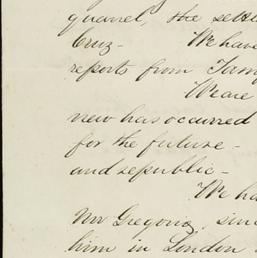 quarrel, the settl
Cruz-
We have
reports from Tam
We are
new has occurred
for the future-
and republic-
We ha
Mr Gregorio, sinc
him in London